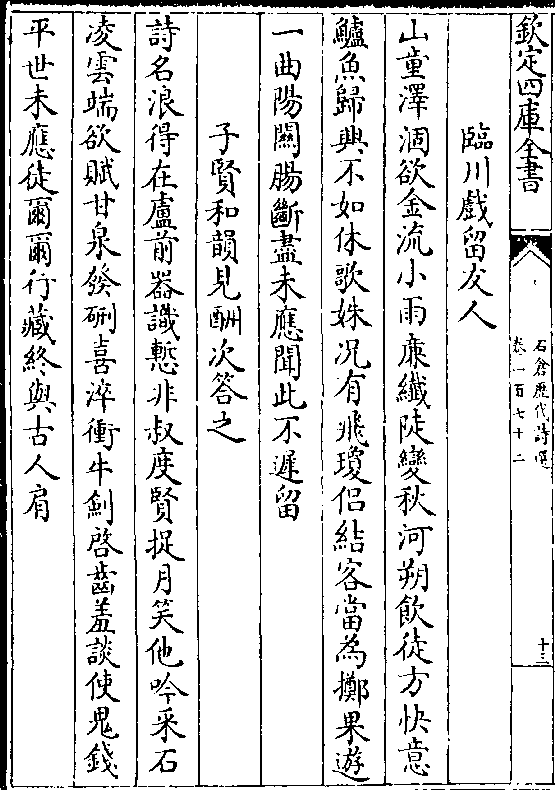 欽定四庫全書
石倉歷代詩選
卷一百七十二
十三
臨川戲留友人
山童澤涸欲金流小雨廉纖陡變秋河朔飲徒方快意
鱸魚歸興不如休歌姝况有飛瓊侣結客當為擲果遊
一曲陽關腸斷盡未應聞此不遲留
子賢和韻見酬次答之
詩名浪得在盧前器識慙非叔度賢捉月笑他吟采石
凌雲端欲賦甘泉發硎喜淬衝牛劍啓齒羞談使鬼錢
平世未應徒爾爾行藏終與古人肩